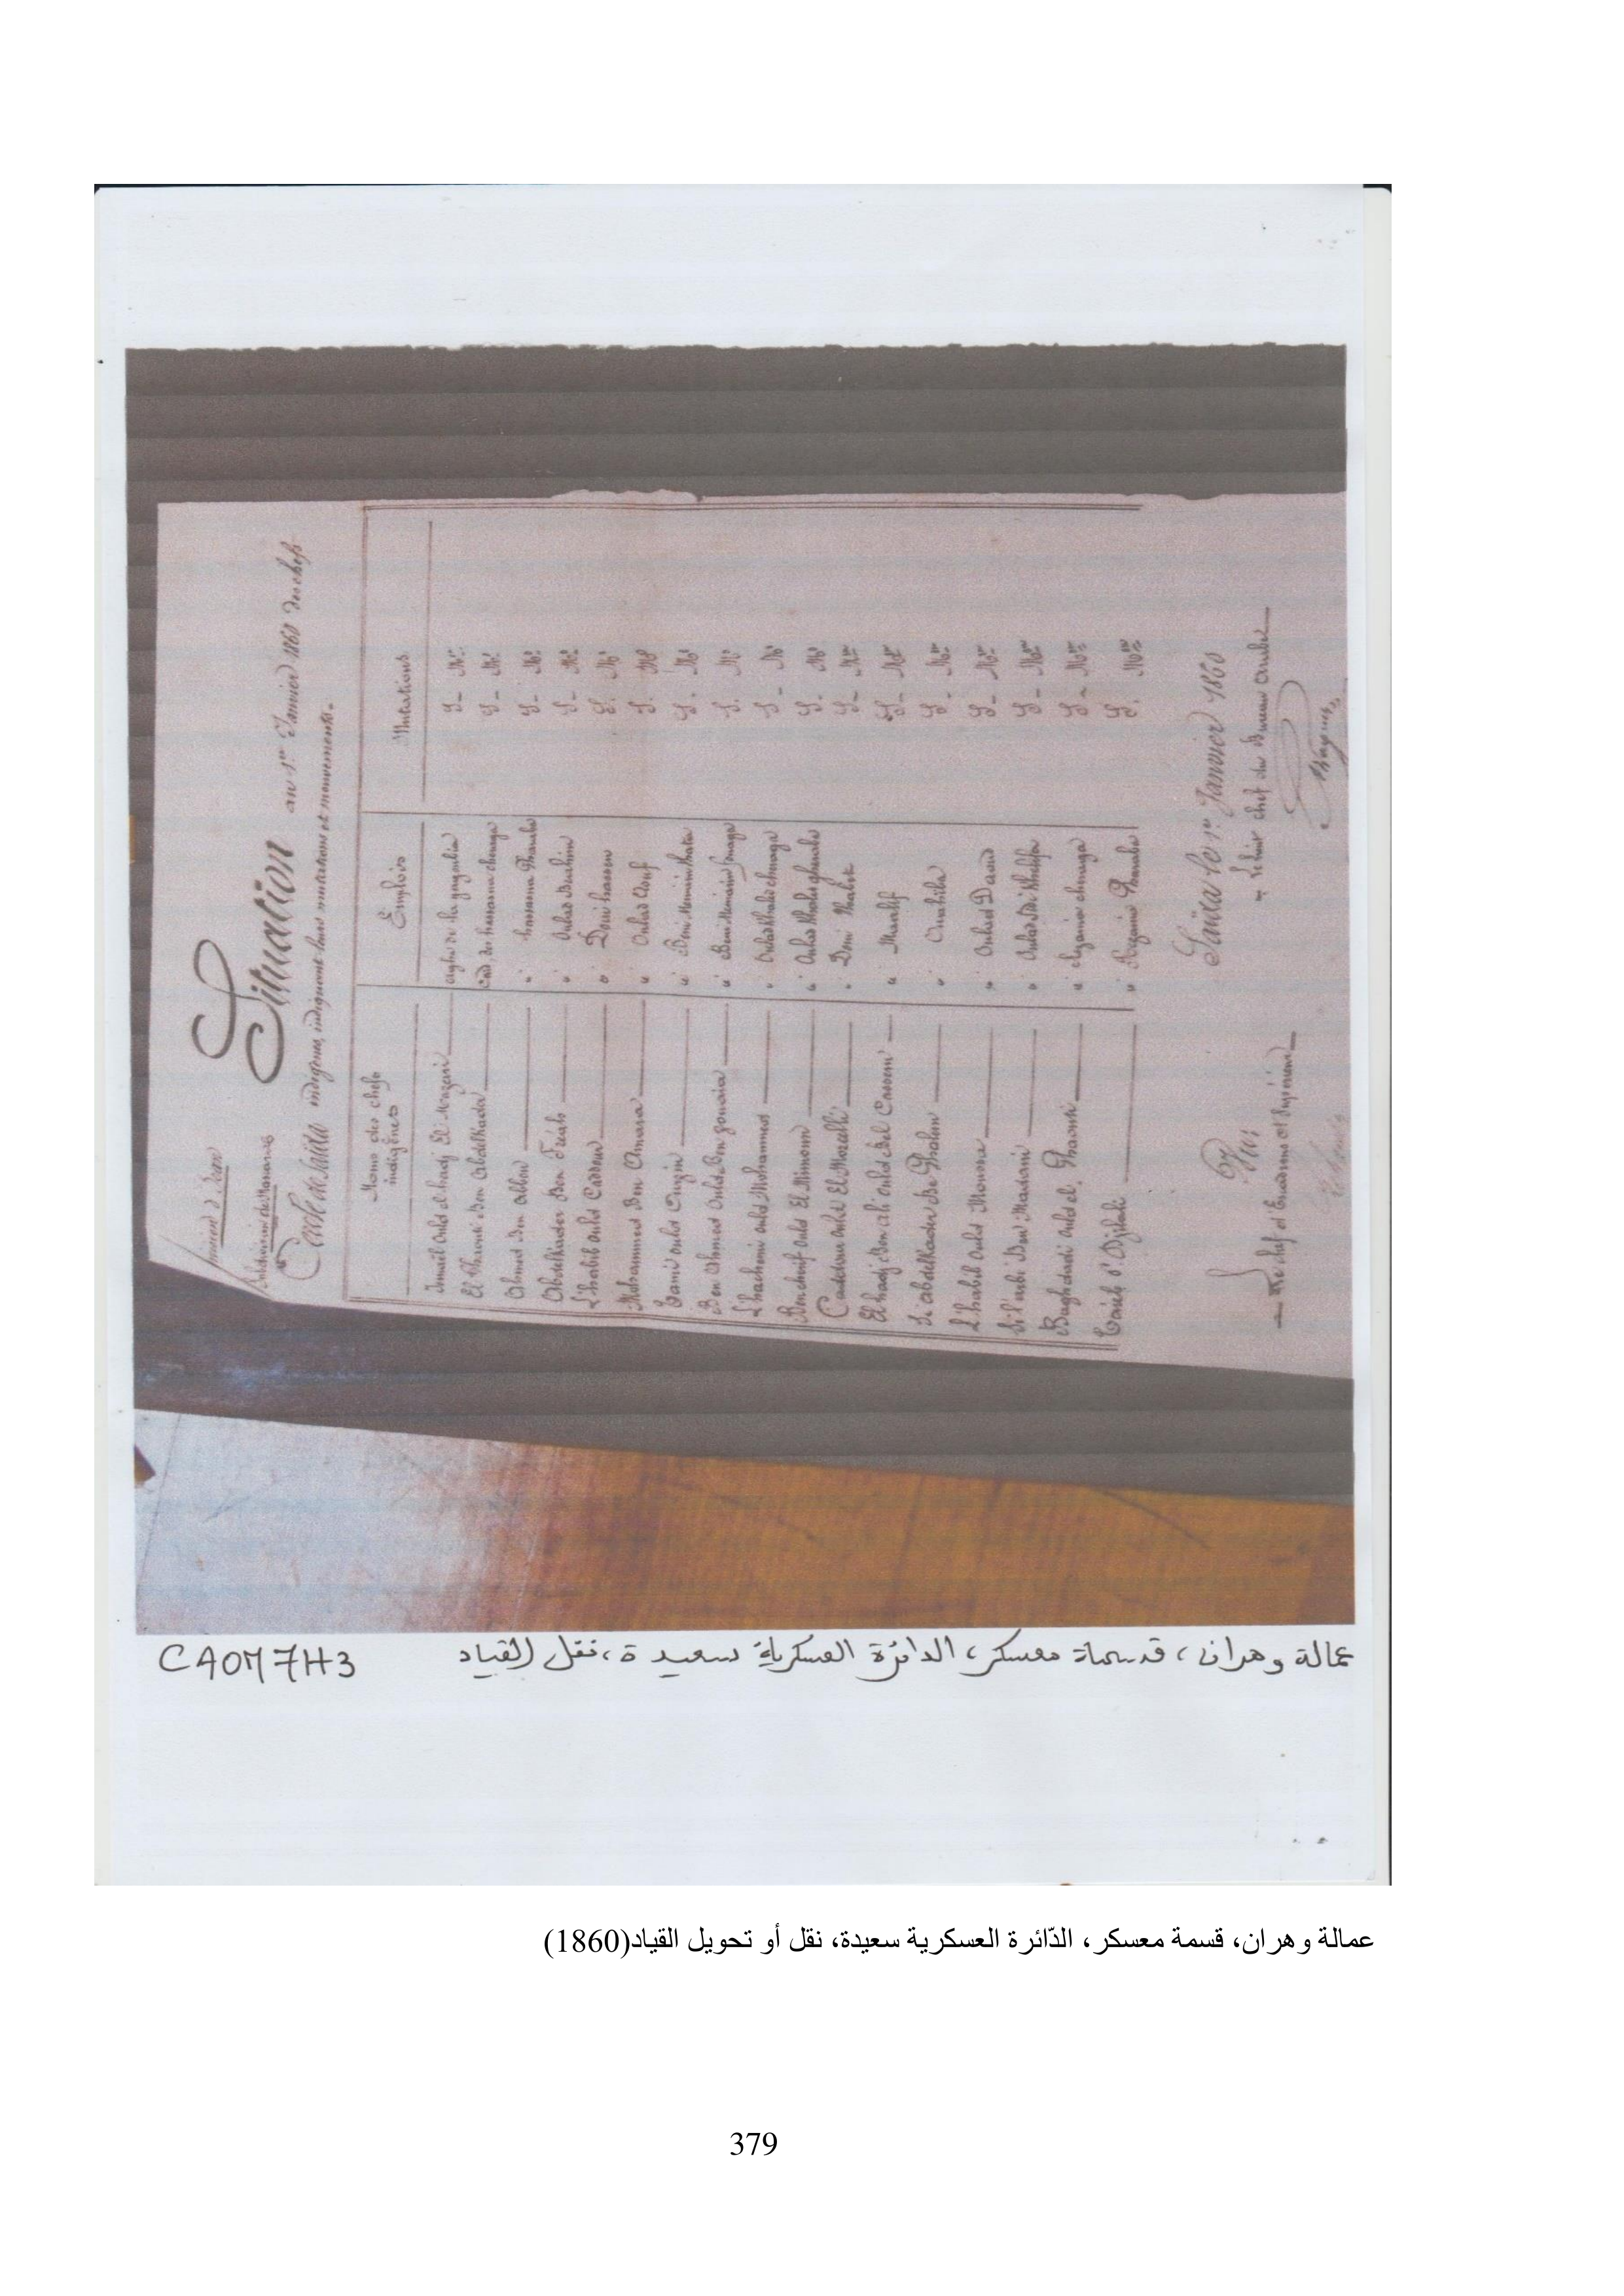 Division d'Oran
Subdivision de Mascara
Cercle de Saïda
Situation au 1er Janvier 1860 des chefs
indigènes, indiquant leurs mutations et mouvements.
Noms des chefs indigènes Emplois Mutations
Ismaïl Ould el hadj El Mezari agha de la
El Ben Abdelkader Caïd des hassasna cheraga S. Mon
Ahmed Ben Allou " hassasna Gharaba S. Mon
Abdelkader Ben " Oulad Brahim S. Mon
L'habib ould Caddour " Doui hassen S. Mon
Mohammed Ben Amara " Oulad Aouf S. Mon
Tami ould " Beni Meniarin Tahta S. Mon
Ben Ahmed Ould Ben " Beni Meniarin fouaga S. Mon
L'hachemi ould Mohammed " Oulad Khaled cheraga S. Mon
Ben cherif ould El Mimoun " Oulad Khaled gharaba S. Mon
Caddour ould El " Doui Thabet S. Mon
El hadj Ben ali ould Bel Cassem " Maalif S. Mon
Si abdelkader Ben " S. Mon
L'habib ould Moussa " Oulad Daoud S. Mon
Si l'arbi Ben Madani " Oulad Sidi Khalifa S. Mon
Baghdadi ould el " Rezaïna cheraga S. Mon
Taïeb o. Djilali " Rezaïna Gharaba S. Mon
Saïda le 1er Janvier 1860
Le chef du Bureau Arabe
Vu;
Le chef d'Escadrons ct Supérieur
CAOM 7H3
عمالة وهران، قسمة معسكر، الدائرة العسكرية سعيدة، نقل القياد
عمالة وهران، قسمة معسكر، الدّائرة العسكرية سعيدة، نقل أو تحويل القياد(1860)
379